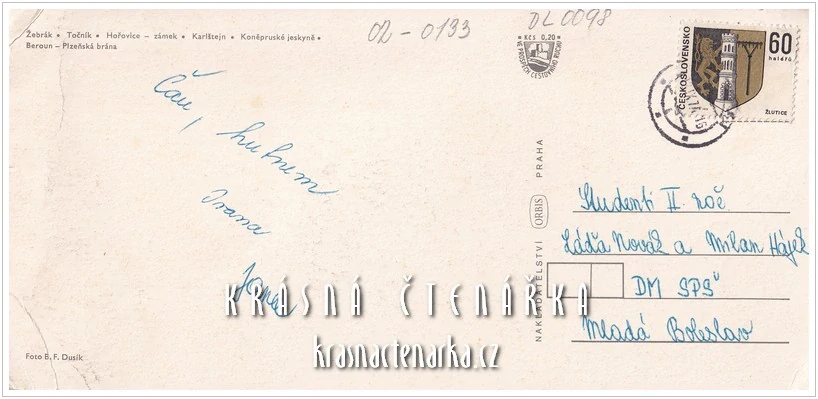 Žebrák • Točník • Hořovice – zámek • Karlštejn • Koněpruské jeskyně •
Beroun – Plzeňská brána
02-0133
DL0098
Kčs 0,20
VE PROSPĚCH CESTOVNÍHO RUCHU
ČESKOSLOVENSKO
60
haléřů
ŽLUTICE
Čau,
Ivana
Jana
NAKLADATELSTVÍ ORBIS PRAHA
Studenti II. roč
Láďa Novák a Milan Hájek
DM SPS
Mladá Boleslav
KRÁSNÁ ČTENÁŘKA
krasnactenarka.cz
Foto B. F. Dusík